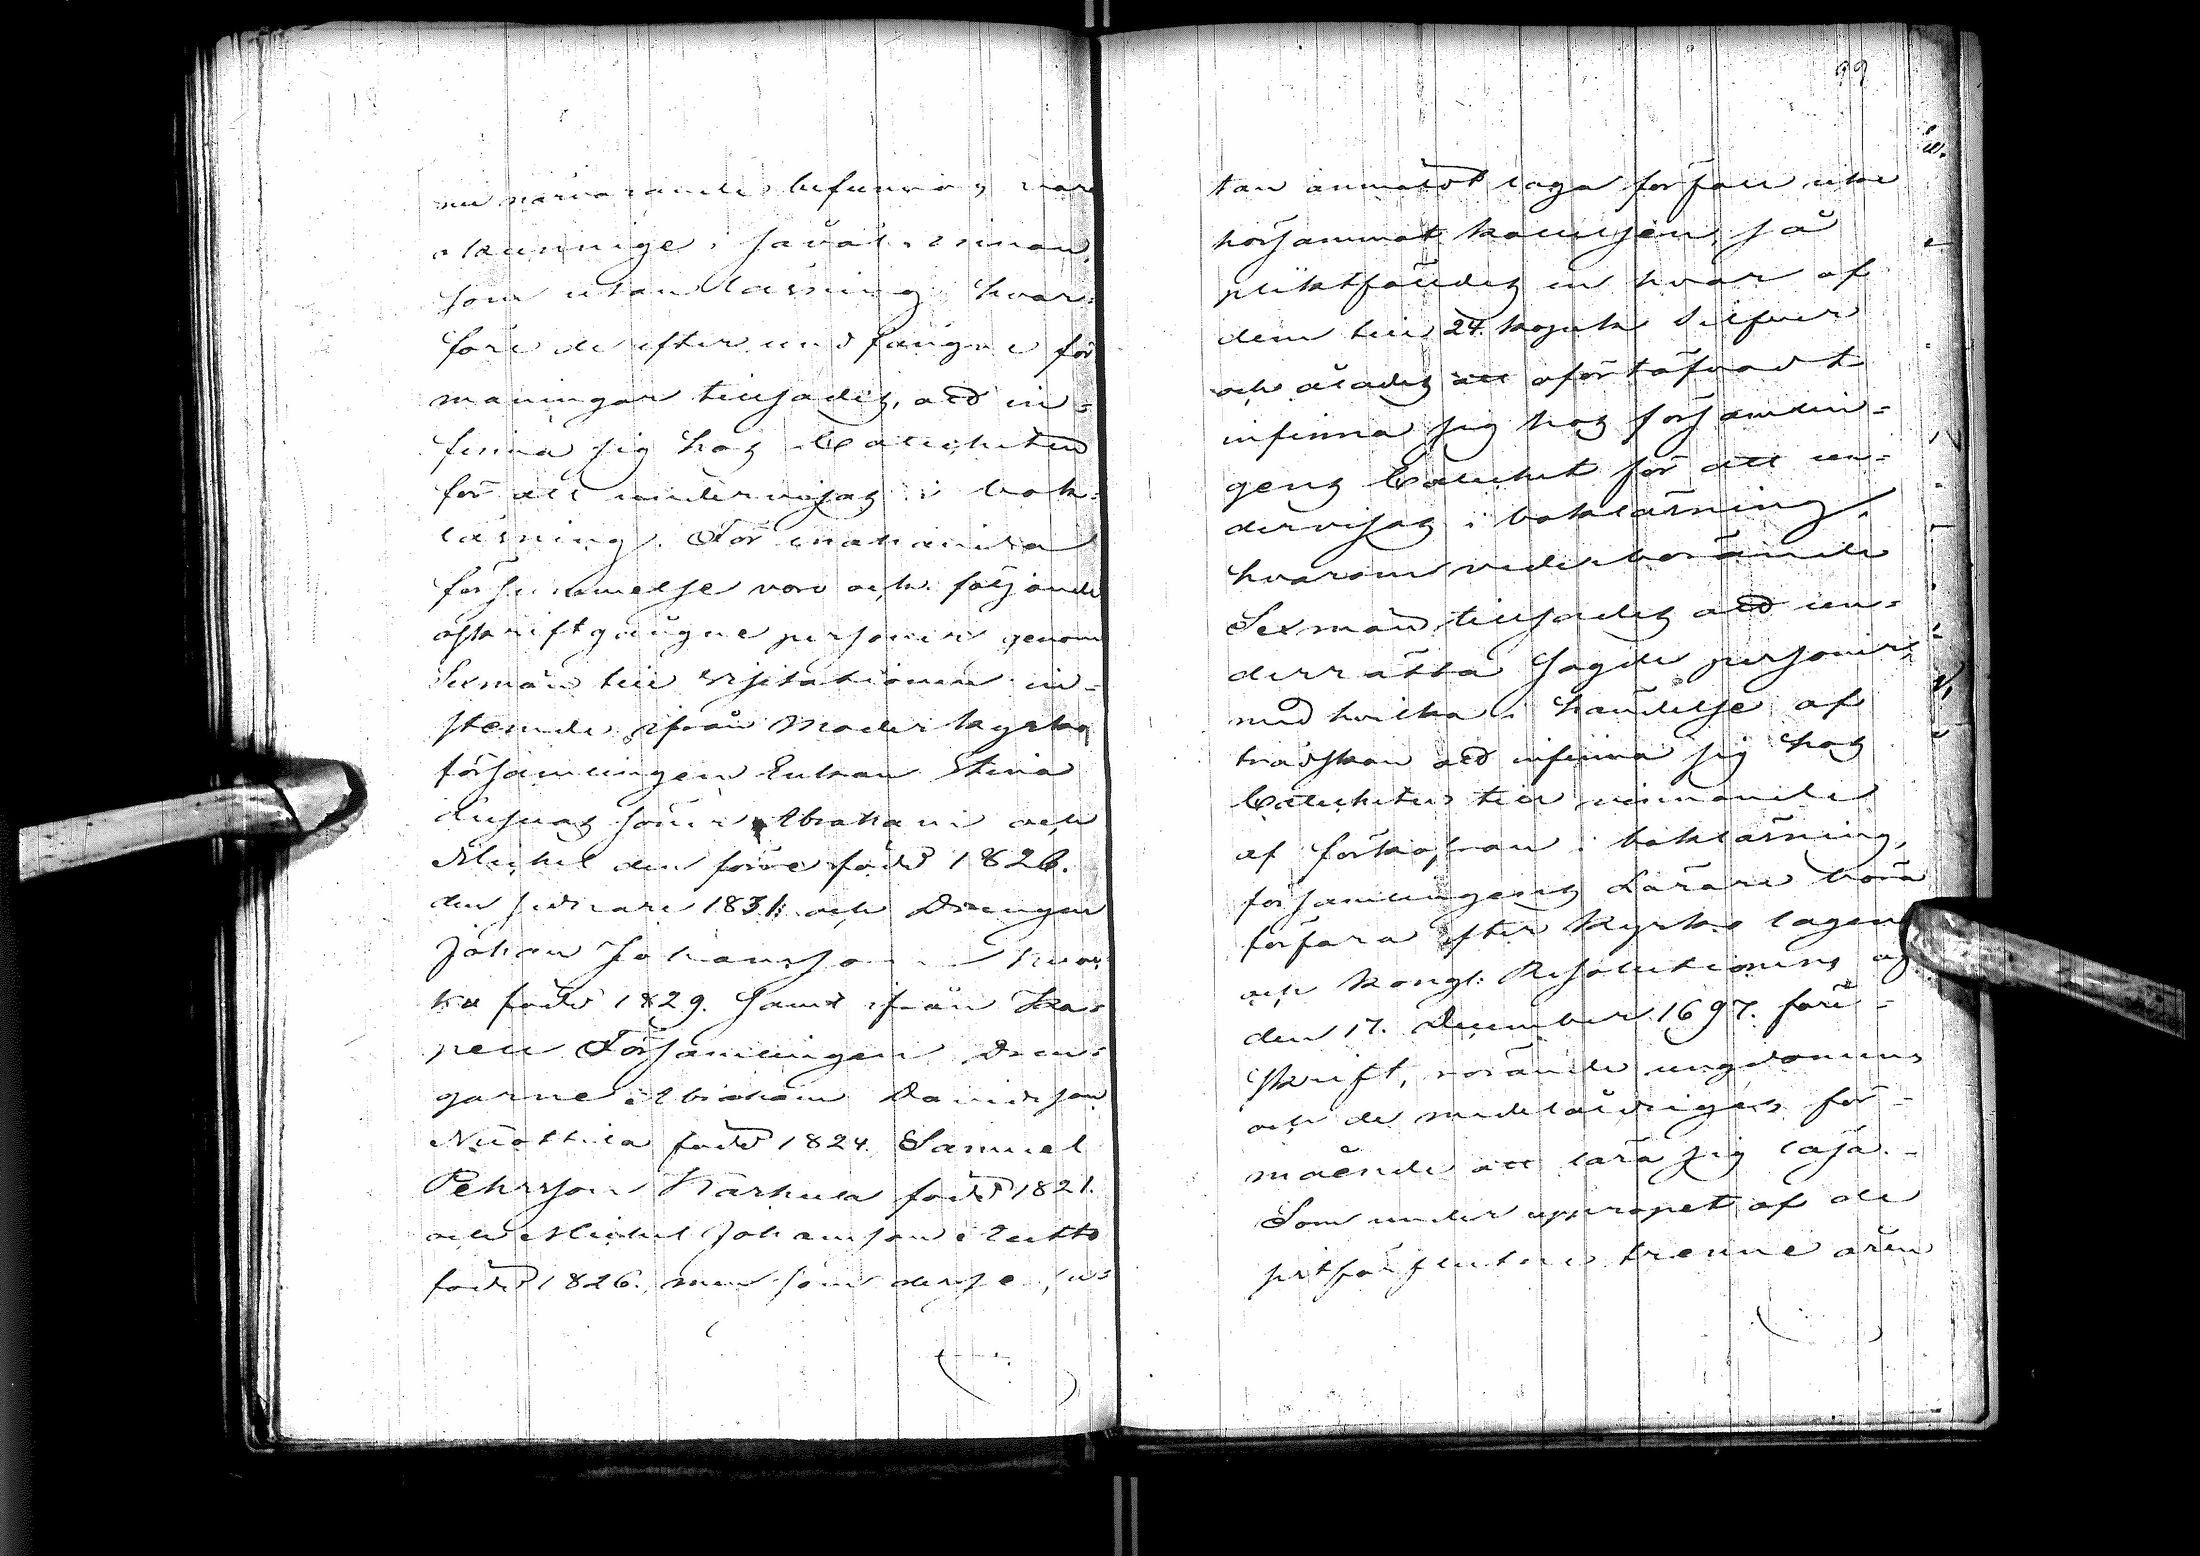 nu närvarande befunnos vara
okunnige i såväl innan
som utan läsning hvar-
före de efter undfångne för
maningar tillsades, att in-
finna sig hos Catecheten
för att undervisas i bok-
läsning. För enahanda
försummelse voro och följande
oskriftgångne personer genom
Sexmän till visitationen in-
stemde, ifrån Moderkyrko
församlingen Enkan Stina
söner Abraham och
Michel den förre född 1826.
den sednare 1831. och Drengen
Johan Johansson
född 1829. Samt ifrån Ka-
pell Församlingen Dren-
garne Abraham Davidsson
Niuottila född 1824. Samuel
Pehrsson Karhula född 1821.
och Michel Johansson
född 1826. men som desse, u-
99
tan anmäldt laga förfall icke
hörsammat kallelsen, så
pliktfäldes en hvar af
dem till 24 kopek Silfver
och ålades att oförtöfvadt
infinna sig hos församlin-
gens Catechet för att un-
dervisas i bokläsning,
hvarom vederbörande
Sexmän tillsades att un-
derrätta sagde personer,
med hvilka i händelse af
tredskan att infinna sig hos
Catecheten till vinnande
af förkofran i bokläsning,
församlingens Lärare böra
förfara efter Kyrko lagen
och Kongl. Resolutionens af
den 17. December 1697. före-
skrift, rörande ungdomens
och de medelåldriges för-
mående att lära sig läsa.
Som under uppropet af de
sistförflutne trenne åren